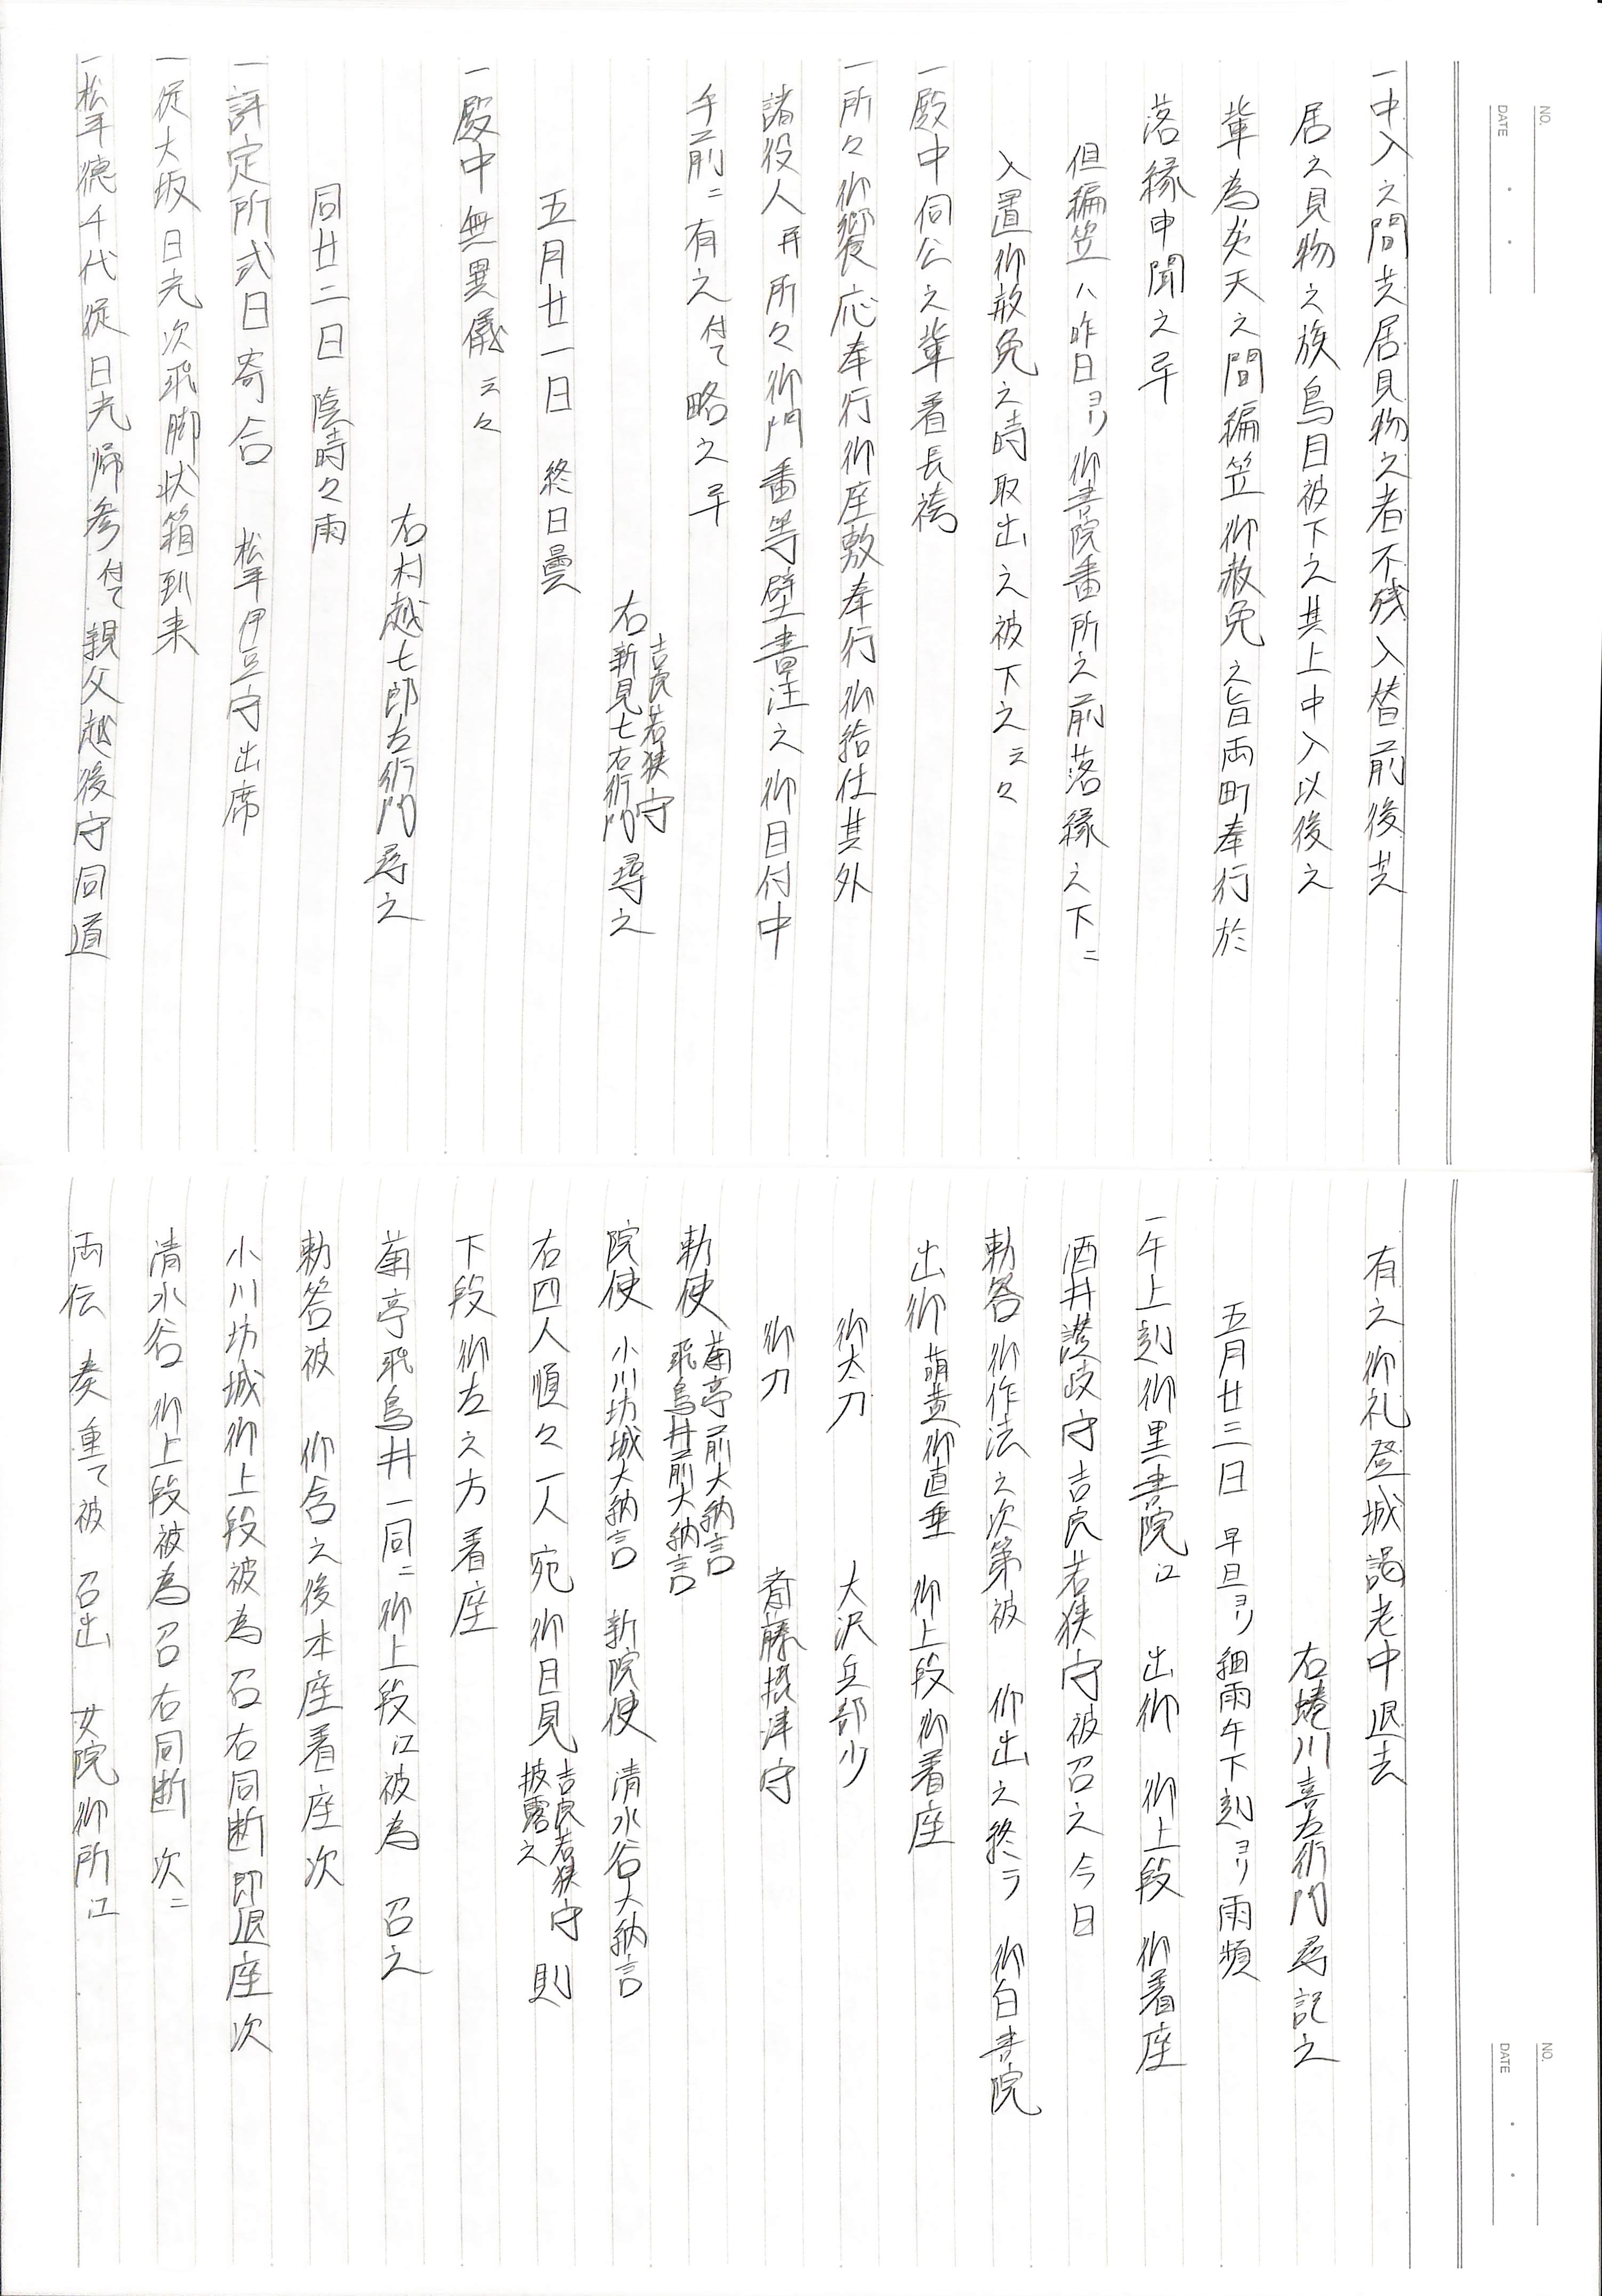 NO.
DATE
一中入之間芝居見物之者不残入替前後芝
居之見物之族鳥目被下之其上中入以後之
輩為炎天之間編笠御赦免之旨両町奉行於
落縁申聞之畢
但編笠ハ昨日ヨリ御書院番所之前落縁之下ニ
入置御赦免之時取出之被下之云々
一殿中伺公之輩着長袴
一所々御饗応奉行御座敷奉行御給仕其外
諸役人并所々御門番等壁書注之御目付中
手前ニ有之付て略之畢
右 吉良若狭守
新見七右衛門 尋之
五月廿一日 終日曇
一殿中無異儀云々
右村越七郎左衛門尋之
同廿二日陰時々雨
一評定所式日寄合 松平伊豆守出席
一従大坂日光次飛脚状箱到来
一松平徳千代従日光帰参付て親父越後守同道
NO.
DATE
有之御礼登城謁老中退去
右蜷川喜左衛門尋記之
五月廿三日 早旦ヨリ細雨午下刻ヨリ雨頻
一午上刻御黒書院江 出御 御上段御着座
酒井讃岐守吉良若狭守被召之今日
勅答御作法之次第被 仰出之終ラ 御白書院
出御 萌黄御直垂 御上段御着座
御太刀 大沢兵部少
御刀 斎藤摂津守
勅使 菊亭前大納言
飛鳥井前大納言
院使 小川坊城大納言 新院使 清水谷大納言
右四人順々一人宛御目見 吉良若狭守
披露之 則
下段御左之方着座
菊亭飛鳥井一同ニ御上段江被為 召之
勅答被 仰含之後本座着座次
小川坊城御上段被為召右同断即退座次
清水谷御上段被為召右同断 次ニ
両伝 奏重て被 召出 女院御所江